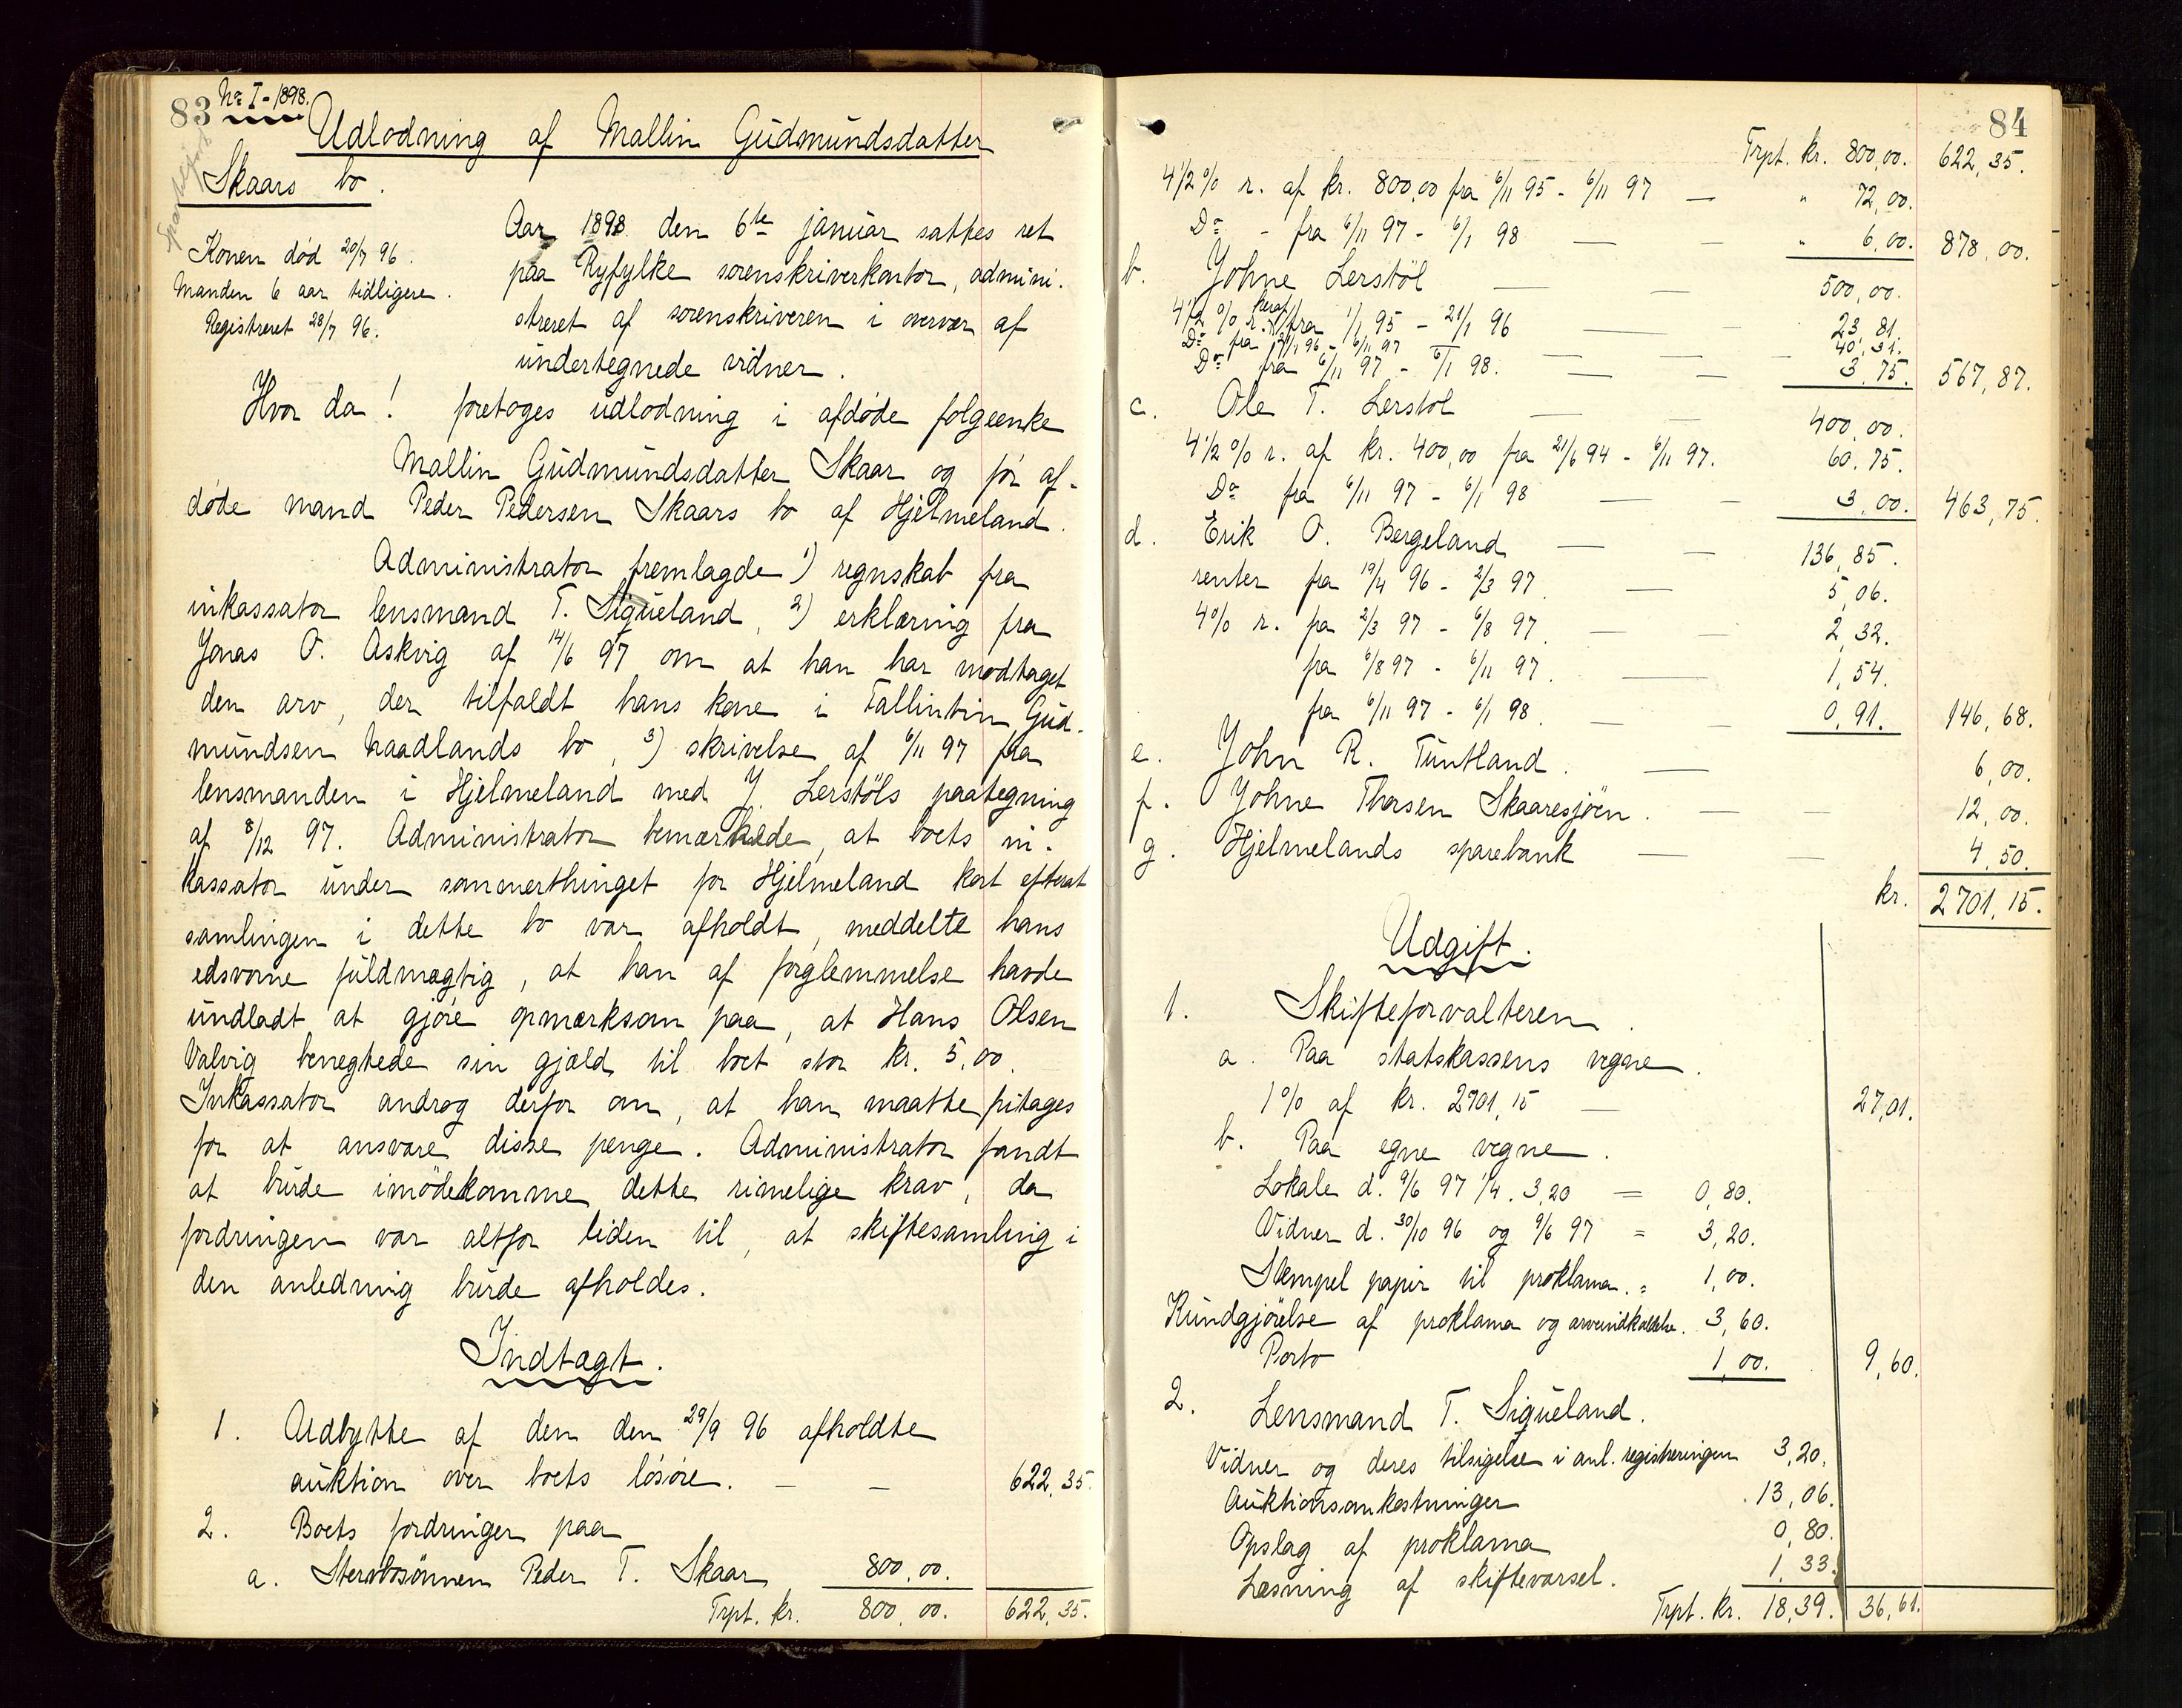 83 No I - 1898.
Udlodning af Mallin Gudmundsdatter
Skaars bo.
Konen død 20/7 96.
Manden 6 aar tidligere.
Registreret 28/7 96.
Aar 1898 den 6te januar sattes ret
paa Ryfylke sorenskriverkontor, admini-
streret af sorenskriveren i overvær af
undertegnede vidner.
Hvor da! foretoges udlodning i afdøde folgeenke
Mallin Gudmundsdatter Skaar og før af-
døde mand Peder Pedersen Skaars bo af Hjelmeland.
Administrator fremlagde 1) regnskab fra
inkassator lensmand T. Sigueland, 2) erklæring fra
Jonas O. Askvig af 14/6 97 om at han har modtaget
den arv, der tilfaldt hans kone i Tallintin Gud-
mundsen haadlands bo, 3) skrivelse af 6/11 97 fra
lensmanden i Hjelmeland med J. Lerstöls paategning
af 8/12 97. Administrator bemærkede, at boets in-
kassator under sommerthinget for Hjelmeland kort efterat
samlingen i dette bo var afholdt, meddelte hans
edsvorne fuldmægtig, at han af forglemmelse havde
undladt at gjøre opmærksom paa, at Hans Olsen
Valvig benegtede sin gjæld til boet stor kr. 5,00.
Inkassator androg derfor om, at han maatte fritages
for at ansvare disse penge. Administrator fandt
at burde imødekomme dette rimelige krav, da
fordringen var altfor liden til, at skiftesamling i
den anledning burde afholdes.
Indtægt.
1. Udbytte af den den 29/9 96 afholdte
auktion over boets løsøre. — — 622,35.
2. Boets fordringer paa
a. Stervbosønnen Peder T. Skaar 800,00.
Trpt. kr. 800,00. 622,35.
84
Trpt. kr. 800,00. 622,35.
4 1/2 % r. af kr. 800,00 fra 6/11 95 - 6/11 97 — " 72,00.
Do - fra 6/11 97 - 6/1 98 — — " 6,00. 878,00.
b. Johne Lerstöl — — 500,00.
4 1/2 % r. heraf fra 1/1 95 - 21/1 96 — — 23,81.
Do fra 21/1 96 - 6/11 97 — — 40,31.
Do fra 6/11 97 - 6/1 98. — — 3,75. 567,87.
c. Ole T. Lerstöl — — 400,00.
4 1/2 % r. af kr. 400,00 fra 21/6 94 - 6/11 97. 60,75.
Do fra 6/11 97 - 6/1 98 — — 3,00. 463,75.
d. Erik O. Bergeland — — 136,85.
renter fra 19/4 96 - 2/3 97. — 5,06.
4% r. fra 2/3 97 - 6/8 97. — — 2,32.
fra 6/8 97 - 6/11 97. — 1,54.
fra 6/11 97 - 6/1 98. — — 0,91. 146,68.
e. John R. Tuntland. — 6,00.
f. Johne Thorsen Skaaresjöen. — — 12,00.
g. Hjelmelands sparebank — — 4,50.
kr. 2701,15.
Udgift.
1. Skifteforvalteren.
a. Paa statskassens vegne.
1% af kr. 2701,15 — 27,01.
b. Paa egne vegne.
Lokale d. 9/6 97 1/4. 3,20 = 0,80.
Vidner d. 30/10 96 og 9/6 97 = 3,20.
Stempel papir til proklama. = 1,00.
Kundgjörelse af proklama og arveindkaldelse. 3,60.
Porto 1,00. 9,60.
2. Lensmand T. Sigueland.
Vidner og deres tilsigelse i anl. registreringen 3,20.
Auktionsomkostninger 13,06.
Opslag af proklama 0,80.
Læsning af skiftevarsel. 1,33.
Trpt. kr. 18,39. 36,61.